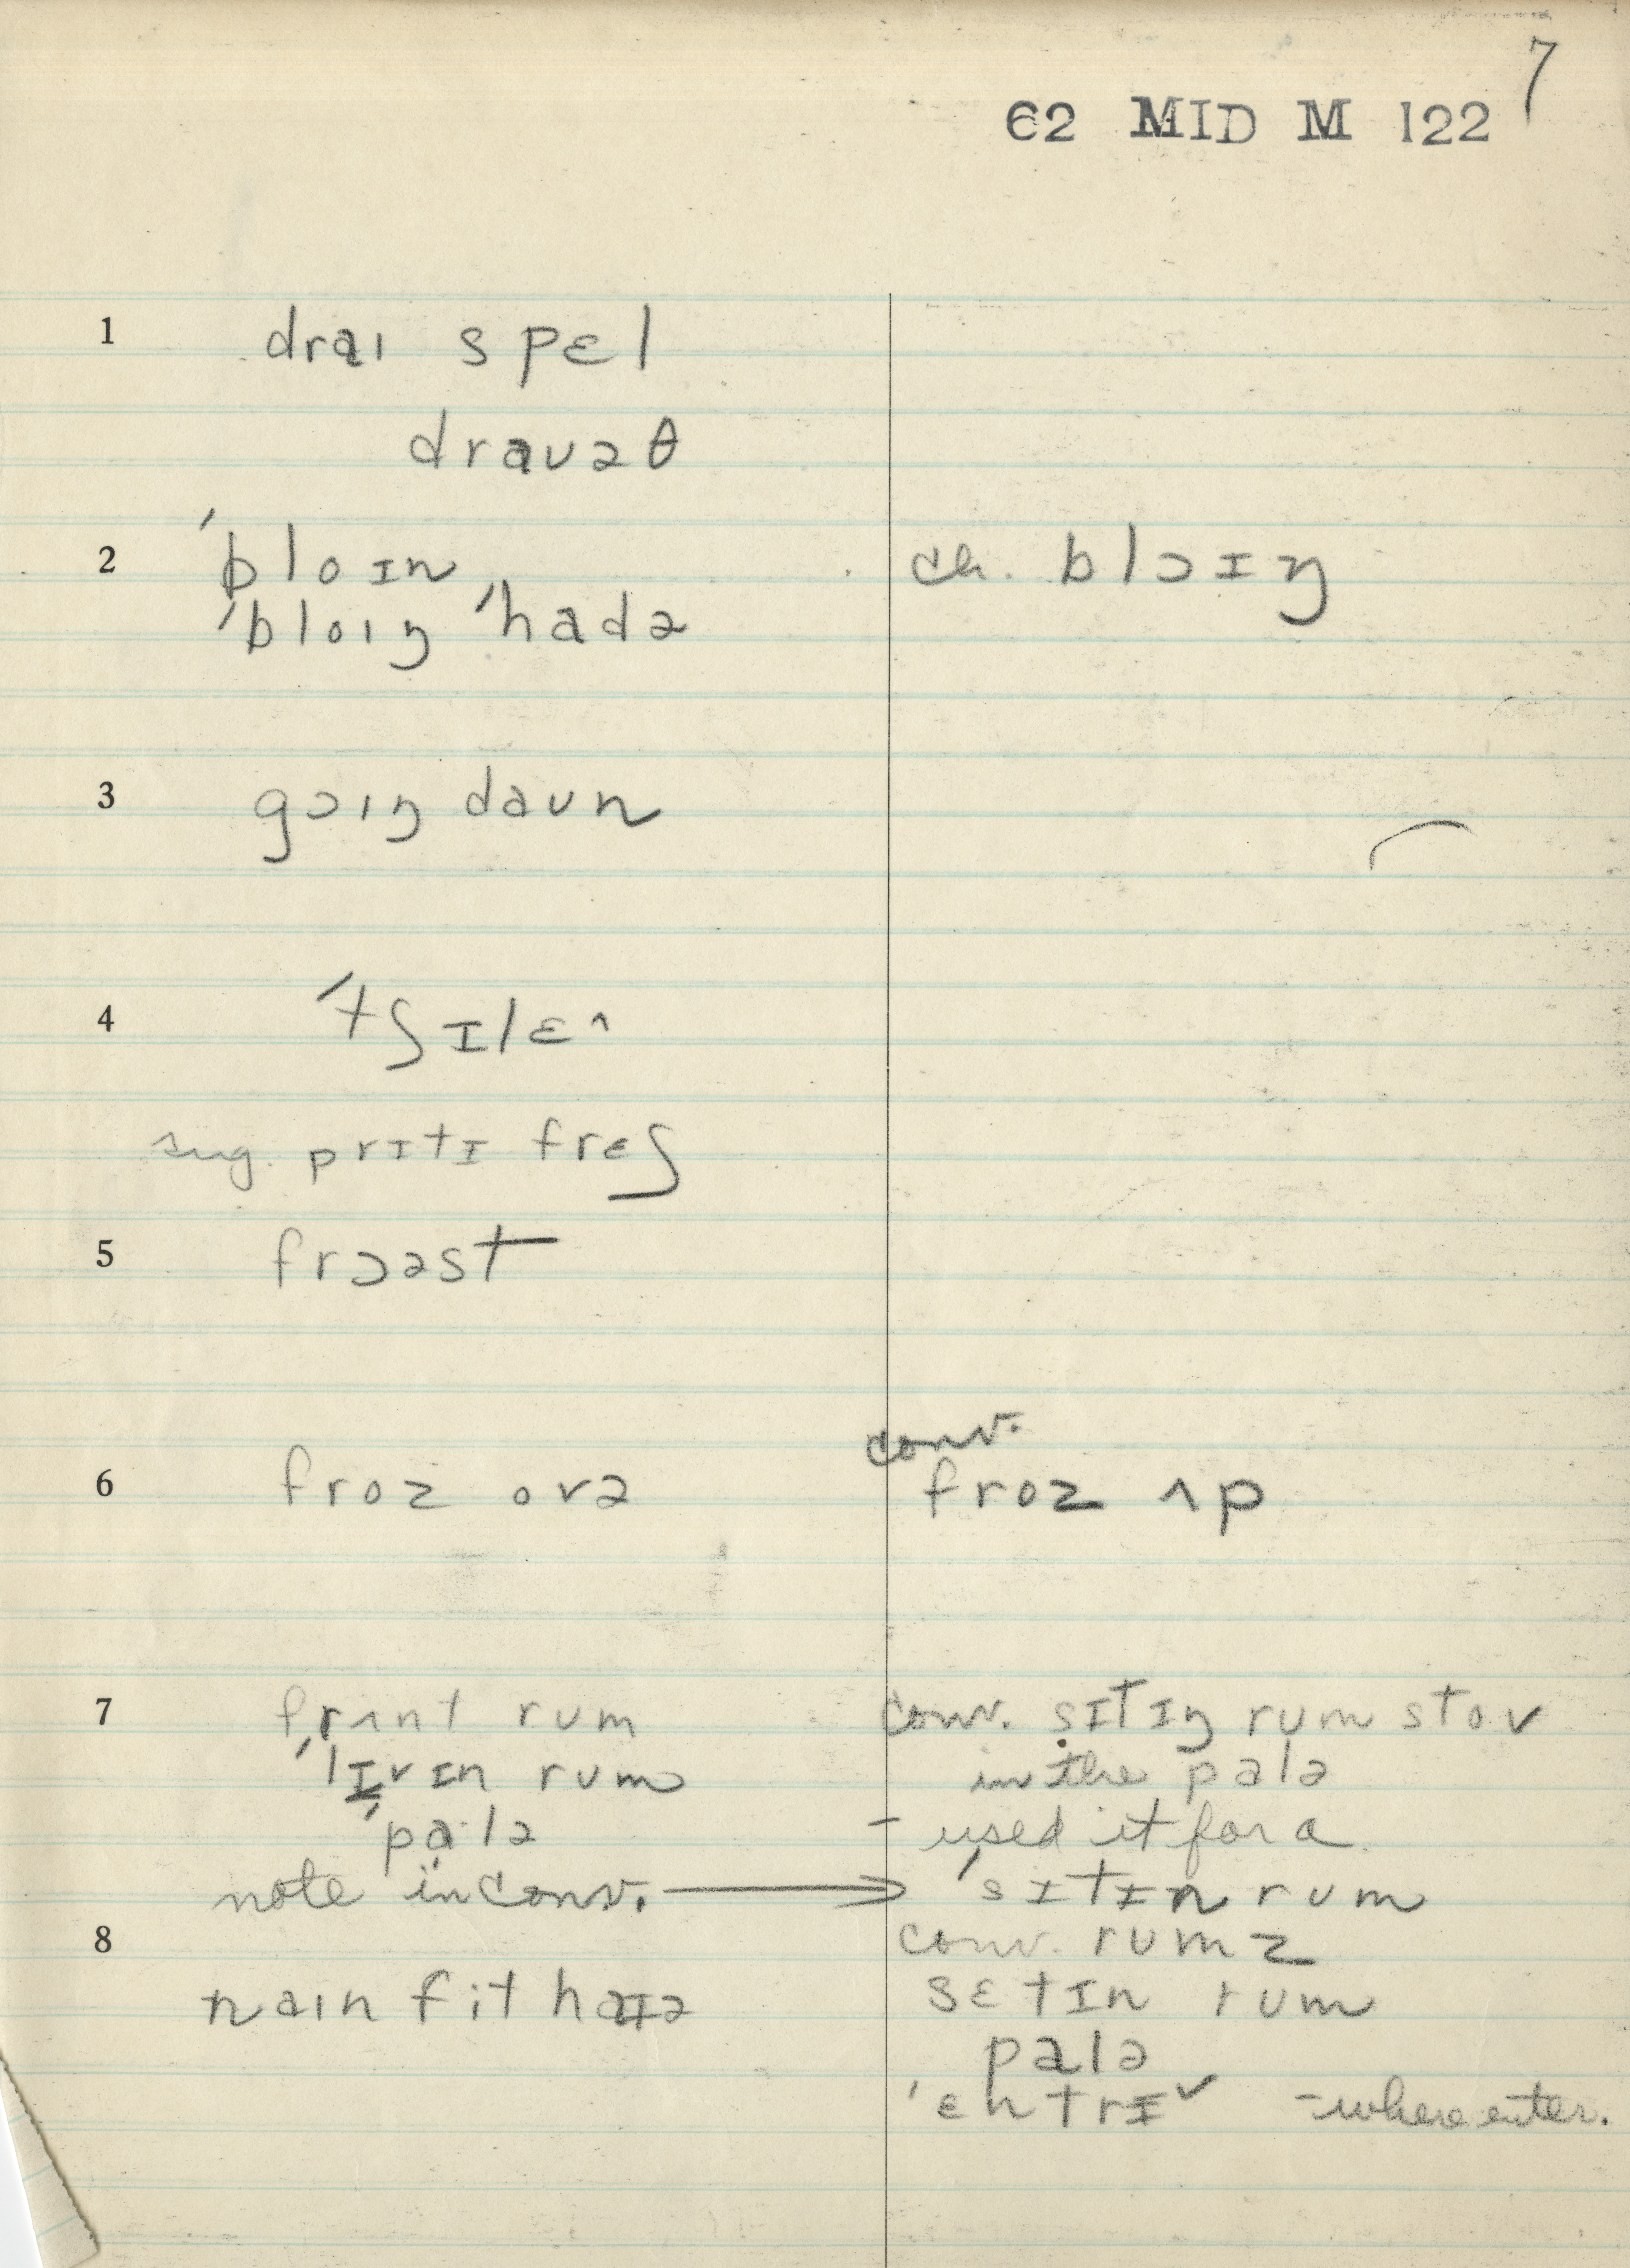 7
62 MID M 122
1 draɪ spɛl
draʊəθ
2 ˈbloɪn ch. blɔɪŋ
ˈbloɪŋ ˈhadə
3 gɔɪŋ daʊn
4 ˈtʃɪlɛ^
sug. prɪtɪ frɛʃ
5 frɔəst
conv.
6 froz ovə froz ʌp
7 frʌnt rum conv. sɪtɪŋ rum stov
ˈlɪvɪn rum in the palə
ˈpalə - used it for a
note in conv. → ˈsɪtɪn rum
8 conv. rumz
naɪn fit haɪə sɛtɪn rum
palə
ˈɛntrɪ˅ - where enter.